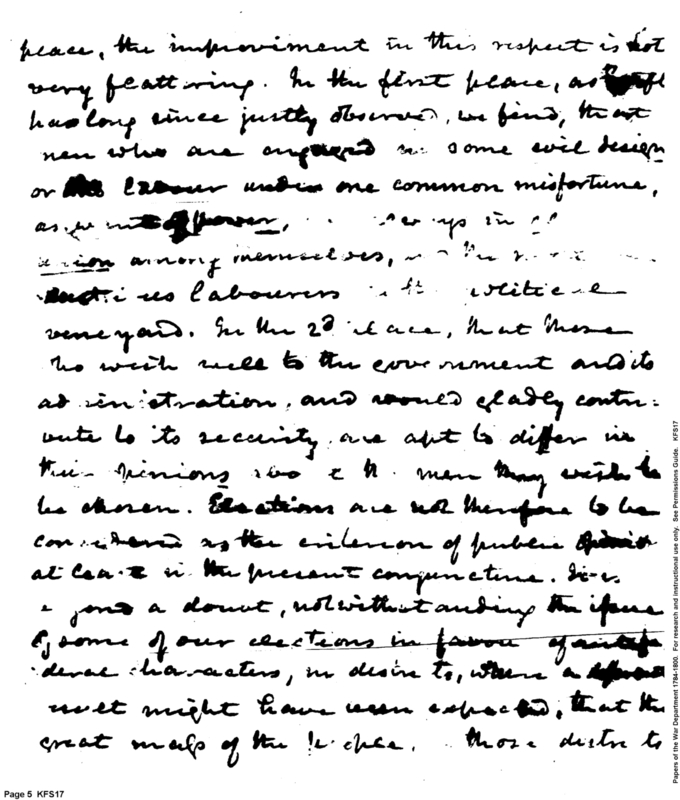 peace, the improviment in this respect is not
very flattering. In the first place, as
has long since justly observed, we find, that
men who are engaged in some evil design
or labour under one common misfortune,
power,
union among themselves,
labourers political
vineyard. In the 2d place, that those
who wish well to the government and its
administration, and would gladly contri-
bute to its security, are apt to differ in
their opinions who men they wish to
be chosen. Elections are not therefore to be
considered as the criterion of public
at least in the present conjuncture. It is
beyond a doubt, notwithstanding the issue
of some of our elections in favour of antife
deral characters, in districts, where a different
result might have been expected, that the
great mass of the people, those districts
Page 5 KFS17
Papers of the War Department 1784-1800. For research and instructional use only. See Permissions Guide. KFS17